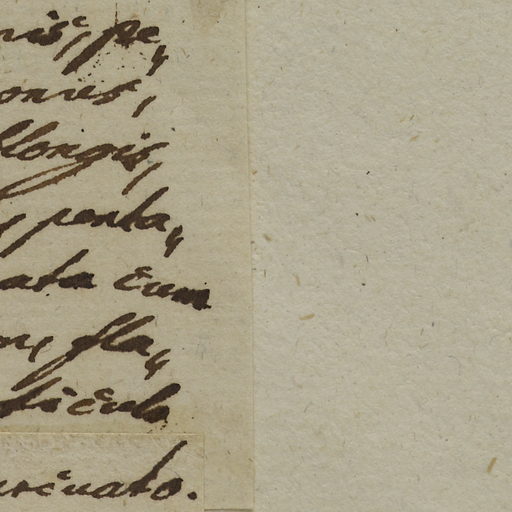 nis, pe„
ones,
llongis,
, penta„
ata cum
on, fla„
ticulo
rcuato.